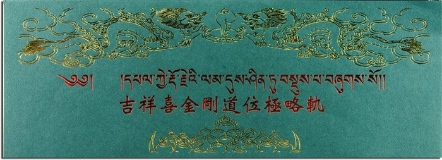 ༄༅། །དཔལ་ཀྱེ་རྡོ་རྗེའི་ལམ་དུས་ཤིན་ཏུ་བསྡུས་པ་བཞུགས་སོ། །
吉祥喜金剛道位極略軌